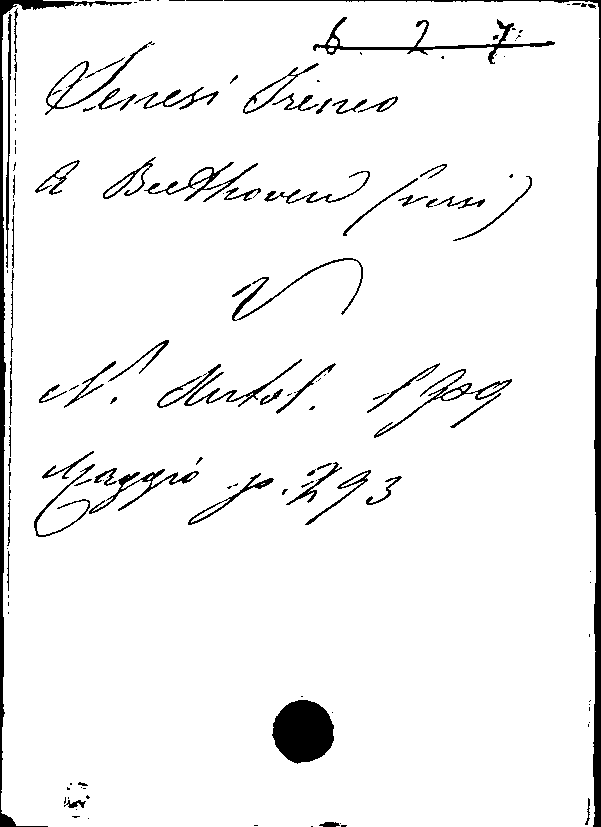 6 2 7
Senesi Ireneo
A Beethoven (versi)
N. Antol. 1909
Maggio p. 293